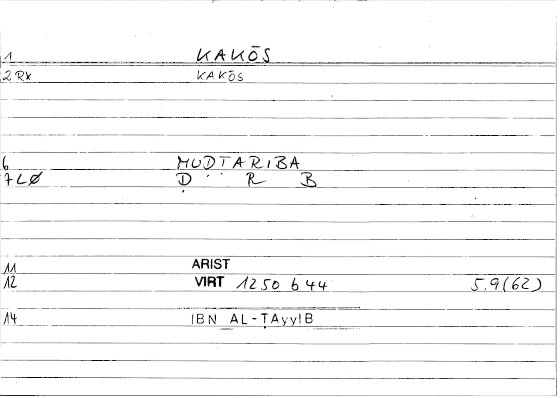 1 KAKŌS
2 Rx KAKŌS
6 MUḌṬARIBA
7 LØ Ḍ R B
11 ARIST
12 VIRT 1250 b 44 5.9(62)
14 IBN AL-ṬAyyIB